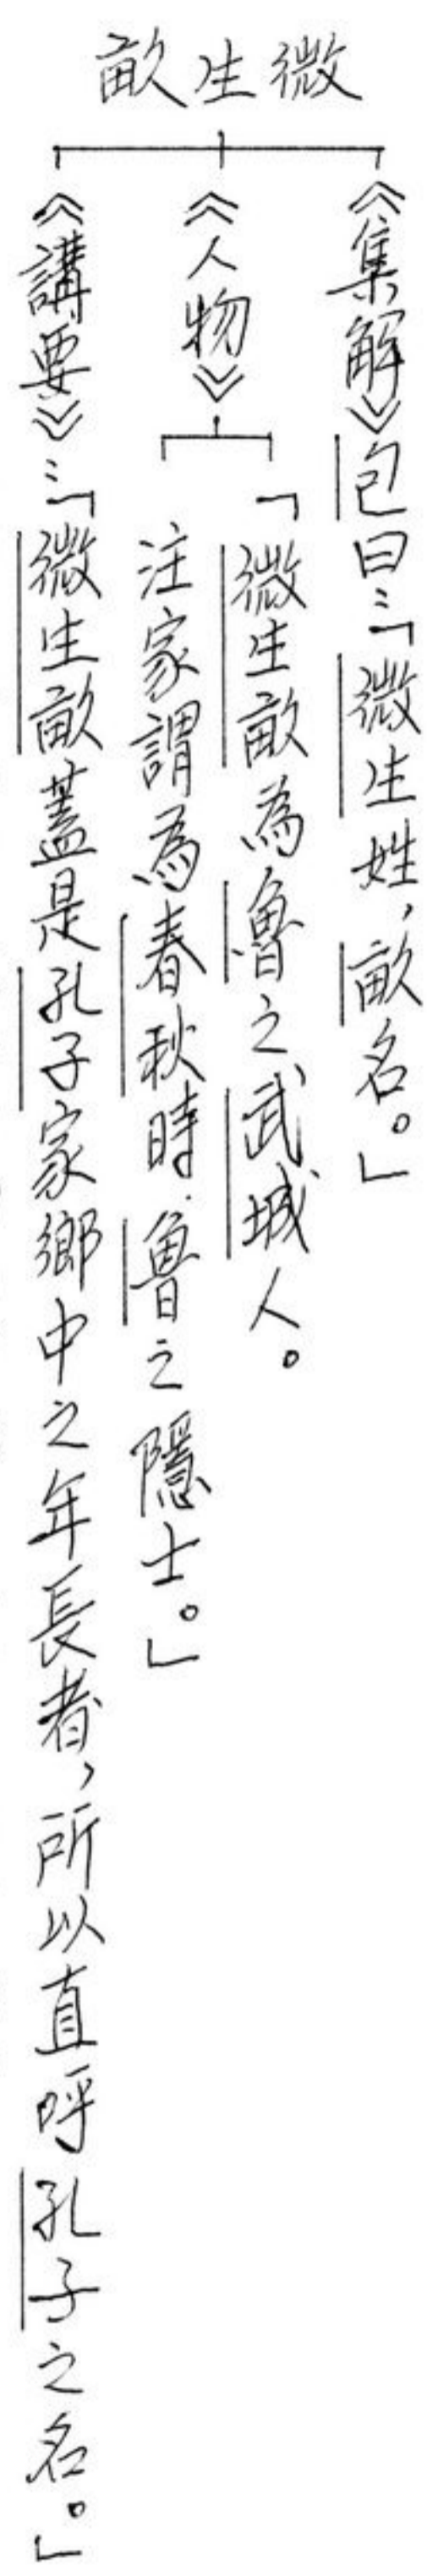 微生畝
《集解》包曰：「微生姓，畝名。」
《人物》
「微生畝為魯之武城人。
注家謂為春秋時魯之隱士。」
《講要》：「微生畝蓋是孔子家鄉中之年長者，所以直呼孔子之名。」